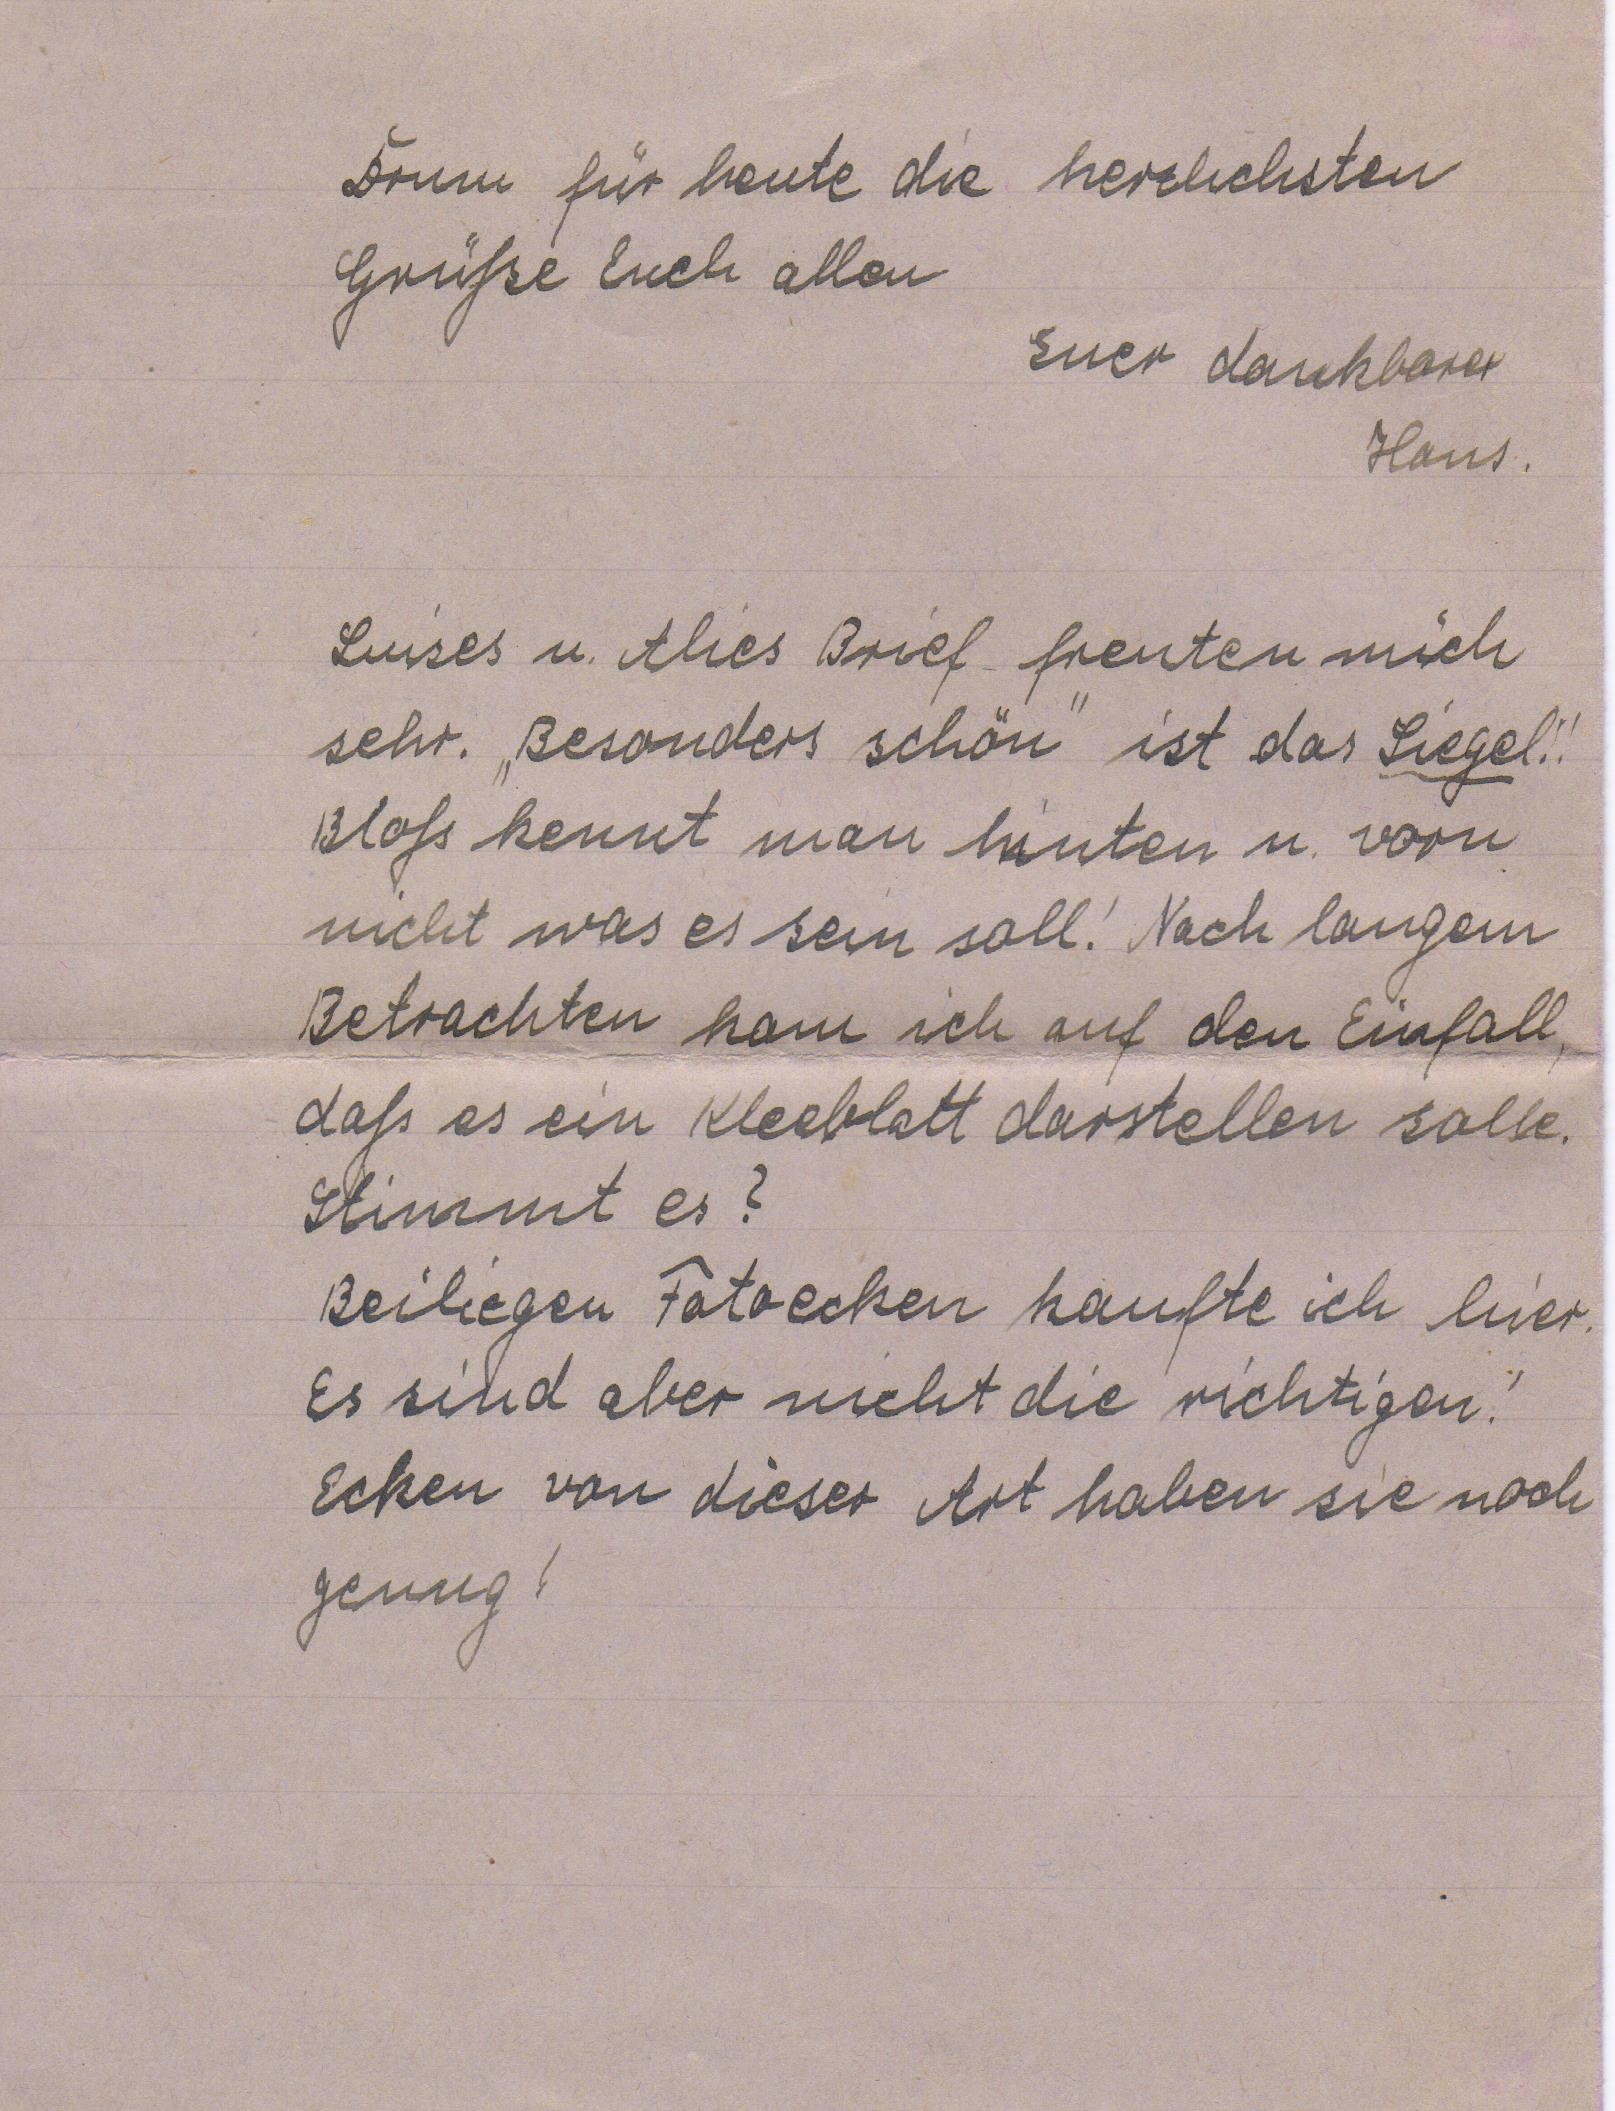 Drum für heute die herzlichsten
Grüße Euch allen
Euer dankbarer
Hans.
Luises u. Alies Brief freuten mich
sehr. „Besonders schön" ist das Siegel!!
Bloß kennt man hinten u. vorn
nicht was es sein soll! Nach langem
Betrachten kam ich auf den Einfall,
daß es ein Kleeblatt darstellen solle.
Stimmt es?
Beiliegen Fotoecken kaufte ich hier.
Es sind aber nicht die richtigen!
Ecken von dieser Art haben sie noch
genug!